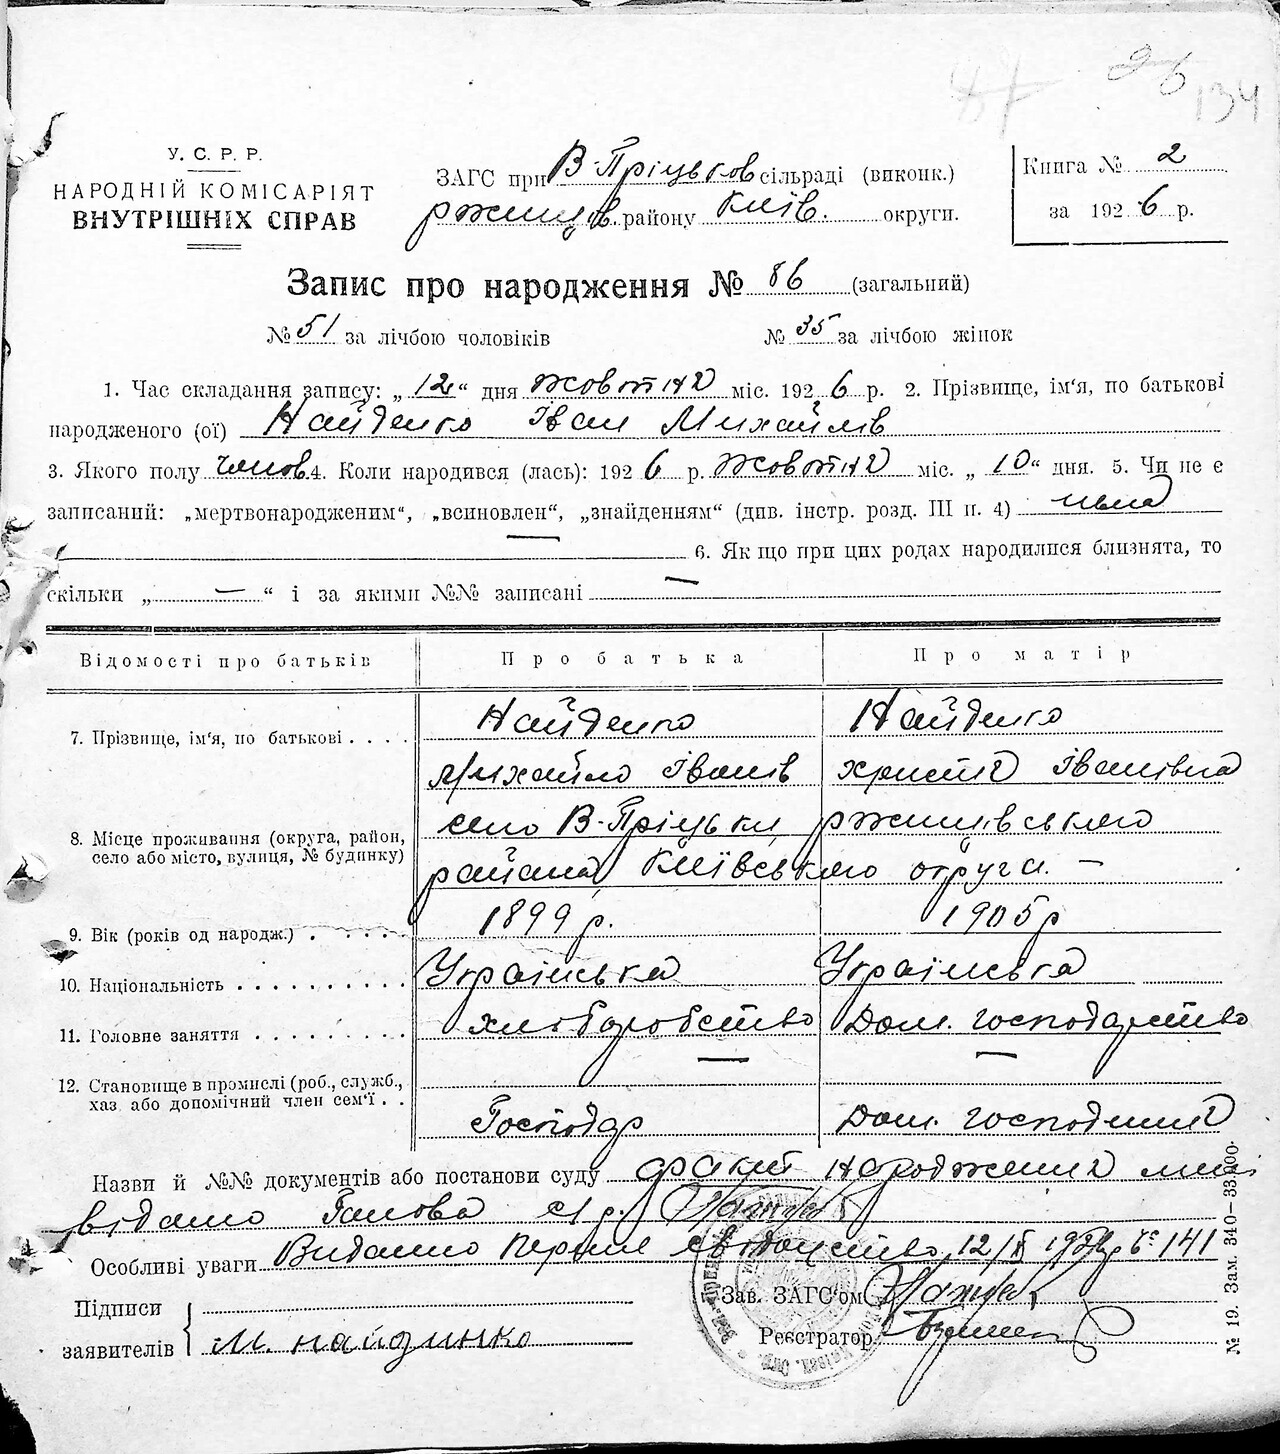 26
47
134
У. С. Р. Р.
НАРОДНІЙ КОМІСАРІЯТ
ВНУТРІШНІХ СПРАВ
ЗАГС при В-Пріцьков сільраді (виконк.)
Ржищів. району Київ. округи.
Книга № 2
за 1926 р.
Запис про народження № 86 (загальний)
№ 51 за лічбою чоловіків № 35 за лічбою жінок
1. Час складання запису: „12“ дня жовтня міс. 1926 р. 2. Прізвище, ім'я, по батькові
народженого (ої) Найденко Іван Михайлів
3. Якого полу чолов. 4. Коли народився (лась): 1926 р. жовтня міс. „10“ дня. 5. Чи не є
записаний: „мертвонародженим“, „всиновлен“, „знайденням“ (див. інстр. розд. III п. 4) нема
— 6. Як що при цих родах народилися близнята, то
скільки „—“ і за якими №№ записані —
Відомості про батьків Про батька Про матір
7. Прізвище, ім'я, по батькові . . . . Найденко Найденко
Михайло Іванів Христя Іванівна
8. Місце проживання (округа, район, село В-Пріцьки Ржищівського
село або місто, вулиця, № будинку) району Київського округи. —
9. Вік (років од народж.) . . . . . 1899 р. 1905 р
10. Національність . . . . . . . . . . Українська Українська
11. Головне заняття . . . . . . . . . хліборобство Дом. господарство
12. Становище в промислі (роб., служб., — —
хаз. або допомічний член сем'ї . . Господар Дом. господиня
Назви й №№ документів або постанови суду факт народження мені
відомо Голова с/р.
Особливі уваги Видано перше свідоцтво 12/X 192 р № 141
Підписи
заявителів М. найдинко
Зав. ЗАГС'ом
Реєстратор
№ 19. Зам. 340—33.000.